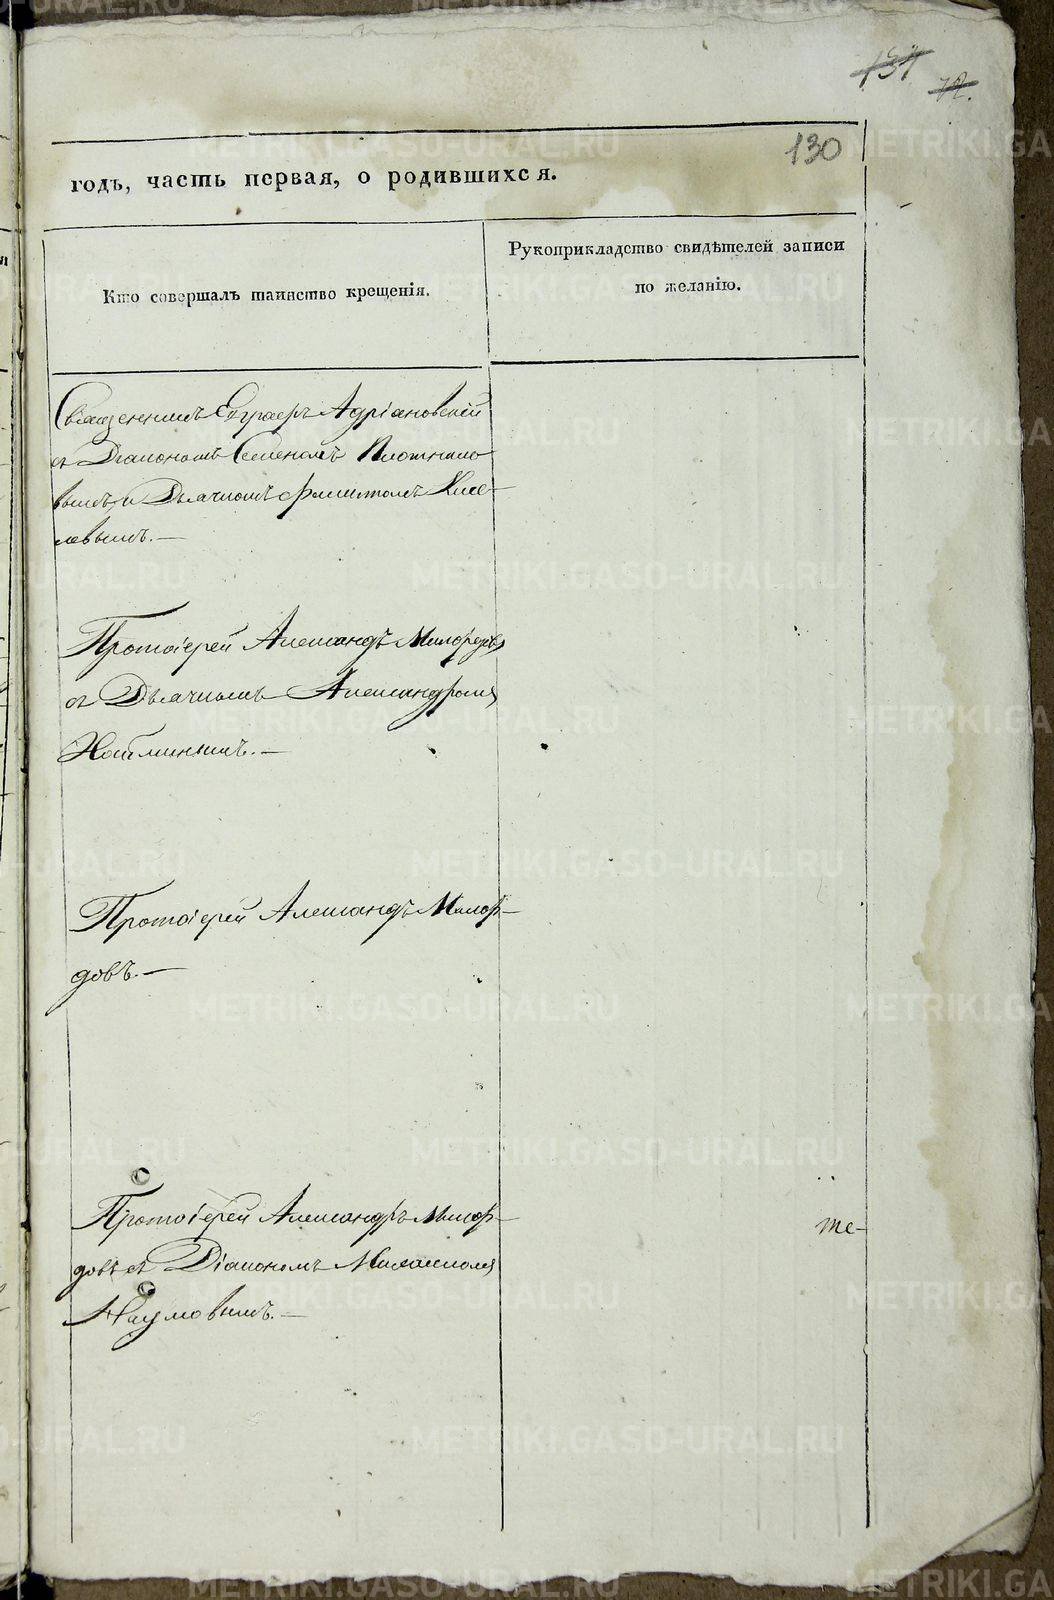 131
72.
130
годъ, часть первая, о родившихся.
Кто совершалъ таинство крещенія.
Рукоприкладство свидѣтелей записи
по желанію.
Священникъ Евграфъ Адріановскій
съ Діакономъ Семеномъ Плотнико-
вымъ и Дьячкомъ Филитомъ Кисе-
левымъ.—
Протоіерей Александръ Милордовъ
съ Дьячкомъ Александромъ
Протоіерей Александръ Милор-
довъ.—
Протоіерей Александръ Милор-
довъ съ Діакономъ
Наумовымъ.—
те-
METRIKI.GASO-URAL.RU